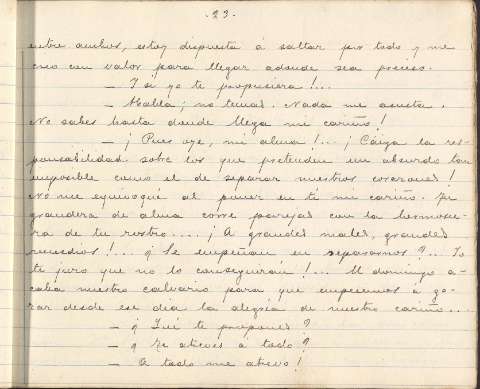 -23.
entre ambos, estoy dispuesta á saltar por todo y me
creo con valor para llegar adonde sea preciso.
— Y si yo te propusiera!...
— Habla; no temas. Nada me asusta.
No sabes hasta donde llega mi cariño!
— ¡Pues oye, mi alma!... ¡Caiga la res-
ponsabilidad sobre los que pretenden un absurdo tan
imposible como el de separar nuestros corazones!
No me equivoqué al poner en tí mi cariño. Tu
grandeza de alma corre parejas con la hermosu-
ra de tu rostro.... ¡A grandes males, grandes
remedios!... ¿Se empeñan en separarnos?.. Yo
te juro que no lo conseguirán!... El domingo a-
caba nuestro calvario para que empecemos á go-
zar desde ese día la alegría de nuestro cariño....
— ¿Qué te propones?
— ¿Te atreves á todo?
— A todo me atrevo!